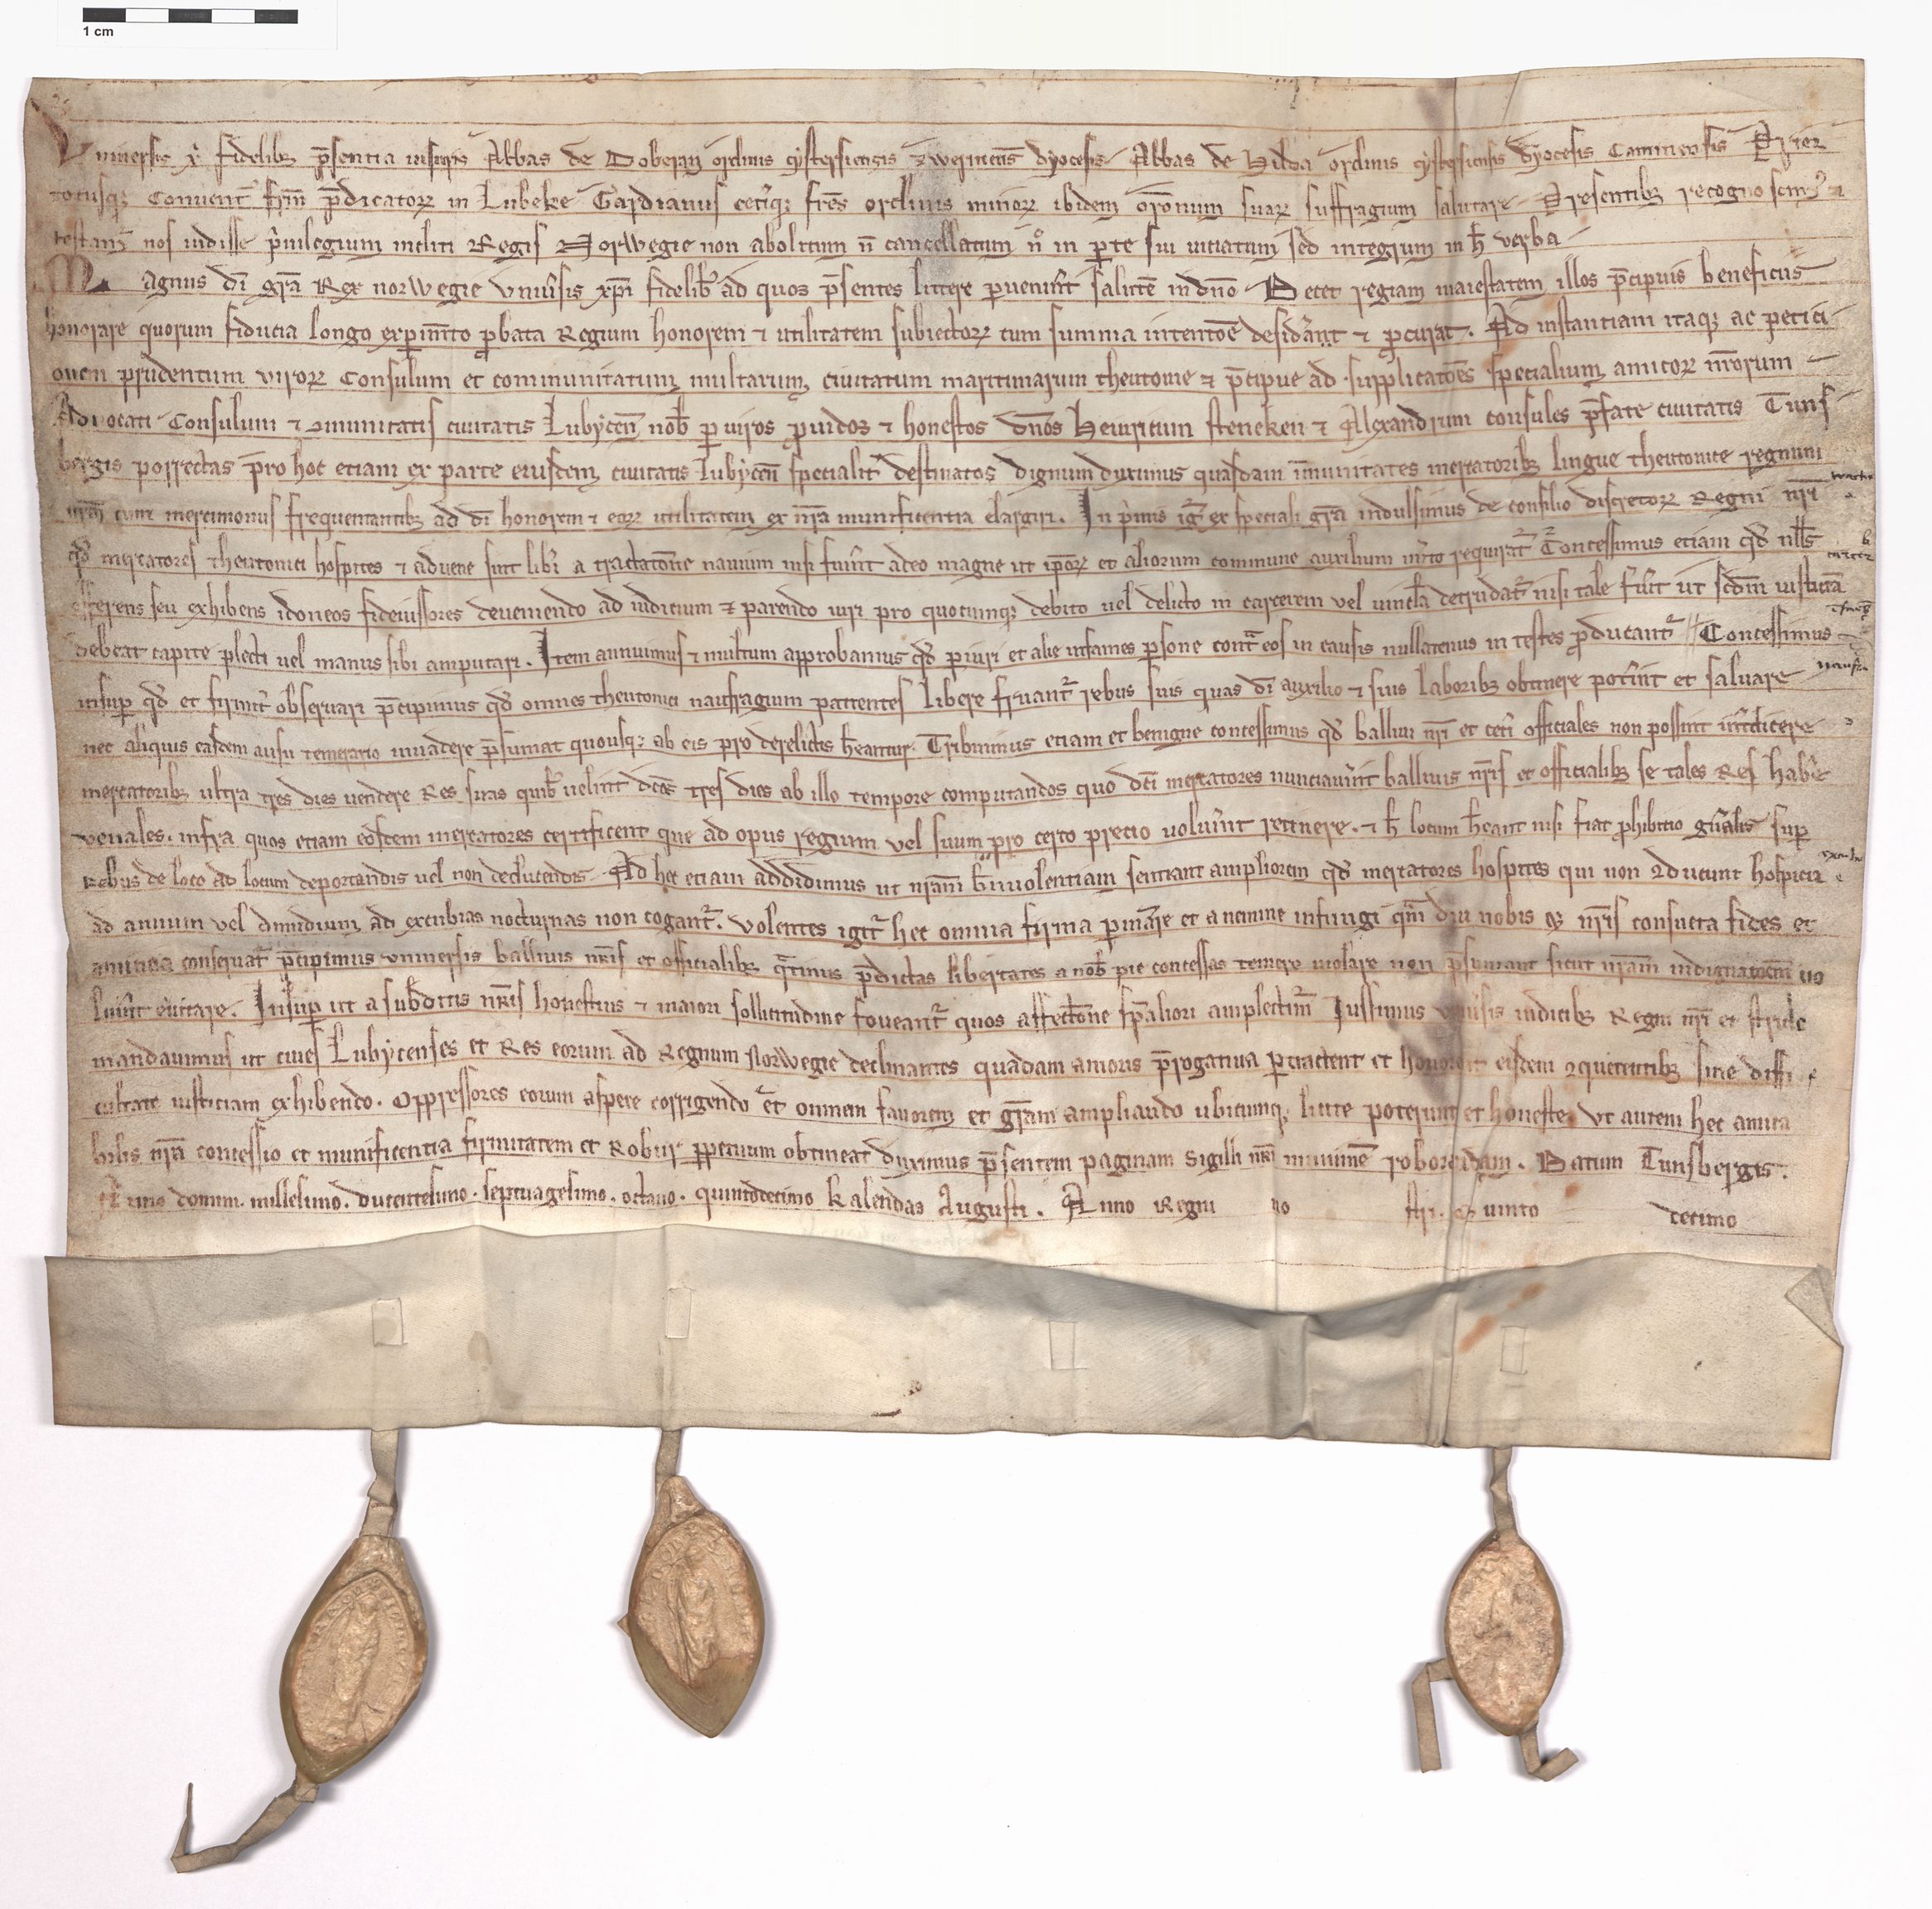 1 cm
Vniuersis xp̄i fidelibꝫ p̄sentia uisuris Abbas de Doberan ordinis cysterciensis zwerinens̄ dyocesis Abbas de Hilda ordinis cysterciensis dyocesis Caminensis Prior
totusqꝫ Conuent᷒ fr̄m p̄dicatorꝝ in Lubeke Gardianus cetiqꝫ fr̄es ordinis minorꝝ ibidem orōnum suarꝝ suffragium salutare Presentibꝫ recognoscimꝰ ⁊
testamꝰ nos uidisse p̍uilegium incliti Regis Norwegie non abolitum n̄ cancellatum n̄ in ꝑte sui uiciatum sed integrum in h̄ verba
Magnus dī gr̄a Rex norwegie vniuͥsis xp̄i fidelibꝫ ad quos p̄sentes littere ꝑueniu̅t salutē in dn̄o Decet regiam maiestatem illos p̄cipuis beneficiis
honorare quorum fiducia longo exꝑim̄to ꝓbata Regium honorem ⁊ utilitatem subiectorꝝ cum summa intentōe desid̾ant ⁊ ꝓcurat. Ad instantiam itaqꝫ ac petici
onem prudentum virorꝝ Consulum et communitatum multarum ciuitatum maritimarum theutonie ⁊ p̄cipue ad supplicatōes specialium amicorꝝ nr̄orum
Aduocati Consulum ⁊ ꝯmunitatis ciuitatis Lubycen̄ nob̄ ꝑ uiros ꝓuidos ⁊ honestos dn̄os Heinricum steneken ⁊ Alexandrum consules p̄fate ciuitatis Tuns
bergis porrectas p̄ro hoc etiam ex parte eiusdem ciuitatis Lubycen̄ specialit̾ destinatos dignum duximus quasdam īmunitates mercatoribꝫ lingue theutonice regnum
nr̄m cum mercimoniis frequentantibꝫ ad dī honorem ⁊ eorꝝ utilitatem ex nr̄a munificentia elargiri. In p̍mis ig̾ ex speciali gr̄a indulsimus de consilio discretorꝝ Regni nr̄i
qd̄ mercatores theutonici hospites ⁊ aduene sint lib̾i a tractatōne nauium nisi fuīnt adeo magne ut ip̄orꝝ et aliorum commune auxilium m̾ito requirāt᷒ Concessimus etiam qd̄ null̄s
offerens seu exhibens idoneos fideiussores deueniendo ad iudicium ⁊ parendo iuri pro quocunqꝫ debito uel delicto in carcerem vel uincl̄a detrudat᷒ nisi tale fu̾it ut sc̄dm iusticiā
debeat capite plecti uel manus sibi amputari. Item annuimus ⁊ multum approbamus qd̄ ꝑiuri et alie infames ꝑsone contͣ eos in causis nullatenus in testes ꝓducant᷒ Concessimus
insuꝑ qd̄ et firmit̾ obseruari p̄cipimus qd̄ omnes theutonici naufragium patientes libere fruant᷒ rebus suis quas dī auxilio ⁊ suis laboribꝫ obtinere pot̾int et saluare
nec aliquis easdem ausu temerario inuadere p̄sumat quousqꝫ ab eis pro derelictis h̄eantur. Tribuimus etiam et benigne concessimus qd̄ balliui nr̄i et cet̾i officiales non possint int̾dicere
mercatoribꝫ ultra tres dies uendere Res suas quibꝫ uelint dc̄os tres dies ab illo tempore computandos quo dc̄i mercatores nunciau̾int balliuis nr̄is et officialibꝫ se tales Res hab̾e
venales. infra quos etiam eosdem mercatores certificent que ad opus regium vel suum pro certo precio uolu̾int retinere. ⁊ h̄ locum h̄eant nisi fiat ꝓhibitio gn̄alis suꝑ
Rebus de loco ad locum deportandis uel non deducendis. Ad hec etiam addidimus ut nr̄am b̄niuolentiam sentiant ampliorem qd̄ mercatores hospites qui non ꝯducunt hospicia
ad annum vel dimidium ad excubias nocturnas non cogant᷒. Volentes igit᷒ hec omnia firma ꝑman̾e et a nemine infringi qm̄ diu nobis et nr̄is consueta fides et
amicicia conseruat᷒ p̄cipimus vniuersis balliuis nr̄is et officialibꝫ qͣtinus p̄dictas libertates a nob̄ pie concessas temere uiolare non p̄sumant sicut nr̄am indignatōem uo
lu̾int euitare. Insuꝑ ut a subditis nr̄is honestius ⁊ maiori sollicitudine foueant᷒ quos affectōne sp̄aliori amplectim᷒ Iussimus vniu̾sis iudicibꝫ Regni nr̄i et stricte
mandauimus ut ciues Lubycenses et Res eorum ad Regnum Norwegie declinantes quadam amoris p̄rogatiua ꝑtractent et honorent eisdem ꝯquerentibꝫ sine diffi
cultate iusticiam exhibendo. Oppressores eorum aspere corrigendo et omnem fauorem et gr̄am ampliando ubicunqꝫ licite poterunt et honeste. Vt autem hec amica
bilis nr̄a concessio et munificentia firmitatem et Robur ꝑpetuum obtineat duximus p̄sentem paginam sigilli nr̄i munimīe roborandam. Datum Tunsbergis.
Anno domini. millesimo. ducentesimo. septuagesimo. octauo. quintodecimo kalendas Augusti. Anno Regni no stri. Quinto decimo